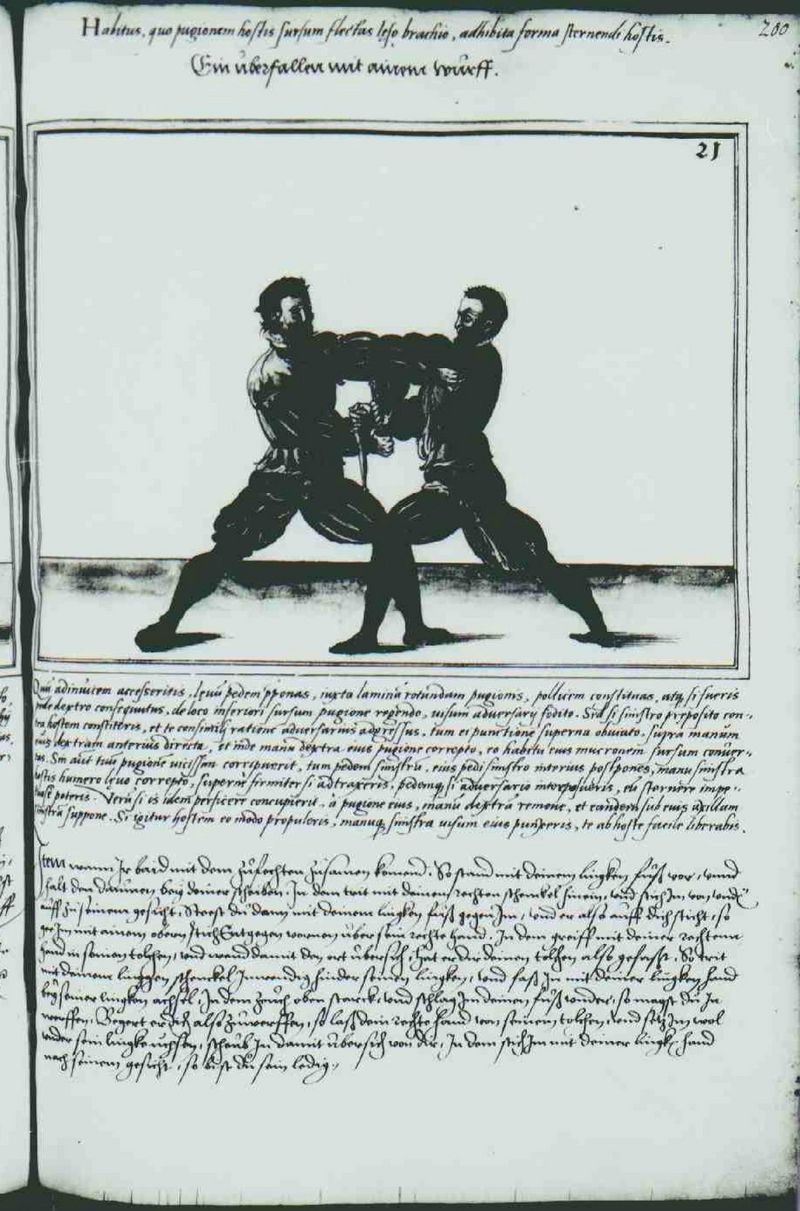 Habitus, quo pugionem hostis sursum flectas leso brachio, adhibita forma sternendi hostis.
200
Ein uberfallen mit ainem wurff.
21
adinuicem accesseritis, leuũ pedem pponas, iuxta laminã rotundam pugionis, pollicem constituas, atq, si fueris
pede dextro consequutus, de loco inferiori sursum pugione regendo, uisum aduersarij fodito. Sed si sinistro preposito con-
tra hostem constiteris, et te consimili ratione aduersarius adgressus, tum ei punctione superna obuiato, supra manum
eius dextram anterius directa, et inde manu dextra eius pugione correpto, eo habitu eius mucronem sursum conuer-
tas. Sin aũt tuũ pugionẽ uicissim corripuerit, tum pedem sinistrũ, eius pedi sinistro interius postpones, manu sinistra
hostis humero leuo correpto, superne firmiter si adtraxeris, pedemq, si aduersario interposueris, eũ sternere impe-
poteris. Verũ si is idem perficere concupierit, a pugione eius, manũ dextrã remoue, et eandem sub eius axillam
sinistrã suppone. Si igitur hostem eo modo propuleris, manuq, sinistra uisum eius punxeris, te ab hoste facile liberabis.
Item wann Ir baid mit dem zufechten zusamen komend, So stand mit deinem lingken fuß vor, vnnd
halt den daumen bey deiner scheiben, In dem trit mit deinem rechten schenkel hinein, vnd stich Im von vndñ
auff zu seinem gesicht, Steest du dann mit deinem lingken fuß gegen Im, vnd er also auff dich sticht, so
gee Im mit ainem obern stich entgegen vornen über sein rechte hand, In dem greiff mit deiner rechten
hand in seinen tolchen, vnd wend damit den ort übersich, hat er dir deinen tolchen also gefast, So trit
mit deinem linggen schenkel Inwendig hinder seinen lingken, vnd faß In mit deiner lingken hand
bey seiner lingken achsel, In dem zeuch oben starck, vnd schlag In deinen fuß vnder, so magst du In
werffen, Begert er dich also zuwerffen, so laß dein rechte hand von seinem tolchen, vnd setz Im wol
vnder sein lingke uchsen, scheub In damit übersich von dir, In dem stich Im mit deiner lingkñ hand
nach seinem gesicht, so bist du sein ledig.